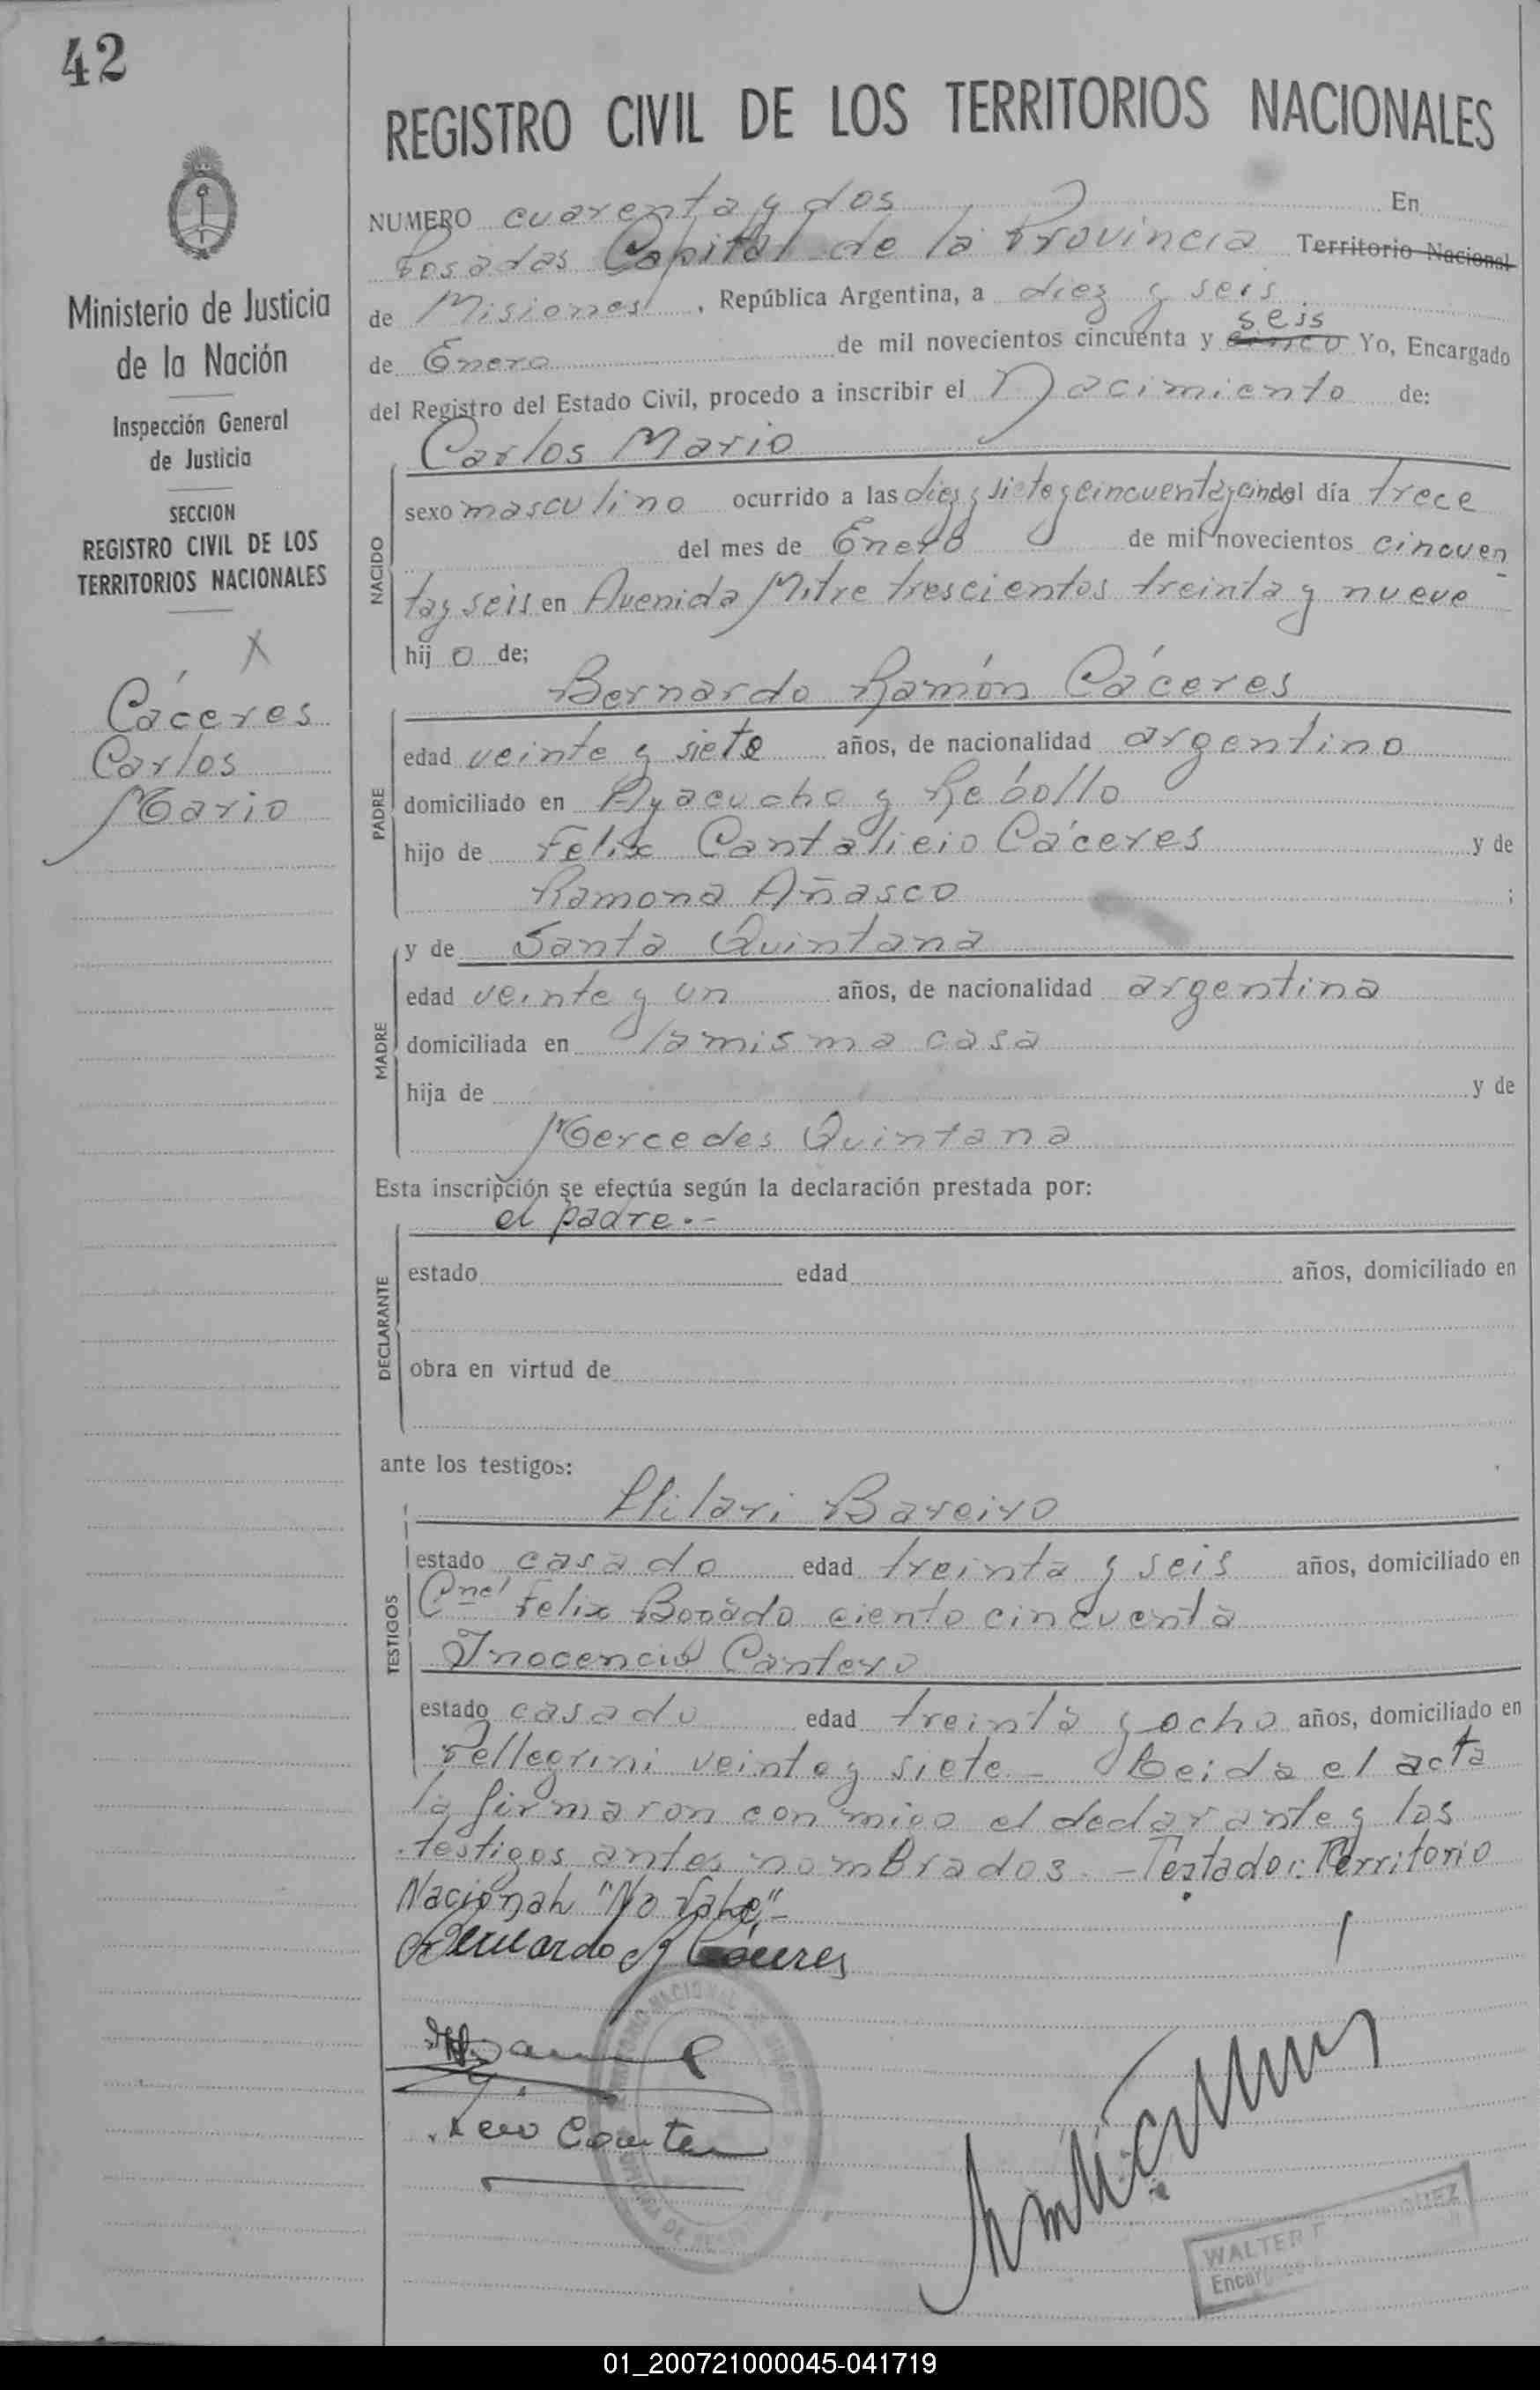 42
REGISTRO CIVIL DE LOS TERRITORIOS NACIONALES
Ministerio de Justicia
de la Nación
Inspección General
de Justicia
SECCION
REGISTRO CIVIL DE LOS
TERRITORIOS NACIONALES
X
Cáceres
Carlos
Mario
NUMERO cuarenta y dos En
Posadas Capital de la Provincia Territorio Nacional
de Misiones, República Argentina, a diez y seis
seis
de Enero de mil novecientos cincuenta y cinco Yo, Encargado
del Registro del Estado Civil, procedo a inscribir el Nacimiento de:
Carlos Mario
NACIDO
sexo masculino ocurrido a las diez y siete y cincuenta y cinco del día trece
del mes de Enero de mil novecientos cincuen
ta y seis en Avenida Mitre trescientos treinta y nueve
hijo de;
Bernardo Ramón Cáceres
PADRE
edad veinte y siete años, de nacionalidad argentino
domiciliado en Ayacucho y Rebollo
hijo de Felix Cantalicio Cáceres y de
Ramona Añasco ;
MADRE
y de Santa Quintana
edad veinte y un años, de nacionalidad argentina
domiciliada en la misma casa
hija de y de
Mercedes Quintana
Esta inscripción se efectúa según la declaración prestada por:
el padre.-
DECLARANTE
estado edad años, domiciliado en
obra en virtud de
ante los testigos:
Hilari Bareiro
TESTIGOS
estado casado edad treinta y seis años, domiciliado en
Cnel Felix Bogado ciento cincuenta
Inocencio Cantero
estado casado edad treinta y ocho años, domiciliado en
Pellegrini veinte y siete - Leida el acta
la firmaron conmigo el declarante y los
testigos antes nombrados. - Testado: Territorio
Nacional "No Vale" -
Bernardo R Cáceres
WALTER
01_200721000045-041719